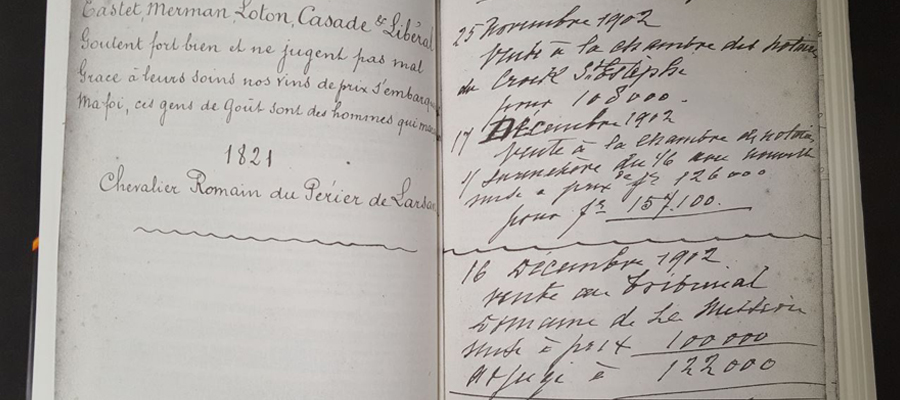 Castet, Merman, Loton, Casade & Libéral
Goutent fort bien et ne jugent pas mal
Grace à leurs soins nos vins de prix s'embarq
Ma foi, ces gens de Goût sont des hommes qui
1821
Chevalier Romain du Périer de Larsan
25 Novembre 1902
Vente à la chambre des notaires
du Crock St Estèphe
pour 108000.
17 Décembre 1902
Vente à la chambre des notaires
du 46
mise à prix de fs 126000
pour fs 157.100.
16 Décembre 1902
Vente au Tribunal
Domaine de La Mission
mise à prix 100000
adjugé à 122000